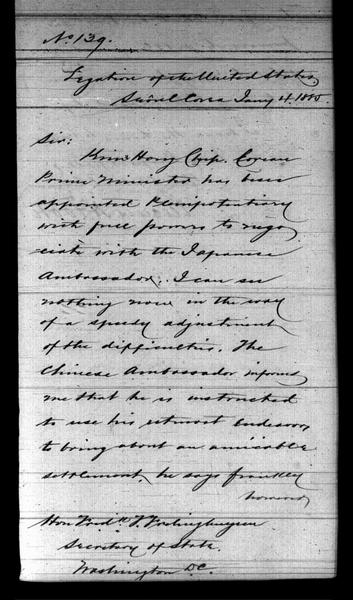 No 139.
Legation of the United States,
Seoul Corea Jany 4. 1885.
Sir:
Kim Hong Chip. Corean
Prime Minister has been
appointed Plenipotentiary
with full powers to nego-
ciate with the Japanese
Ambassador. I can see
nothing now in the way
of a speedy adjustment
of the difficulties. The
Chinese Ambassador informs
me that he is instructed
to use his utmost endeavors
to bring about an amicable
settlement, he says frankly
however,
Hon Fredk T. Frelinghuysen
Secretary of State.
Washington D.C.